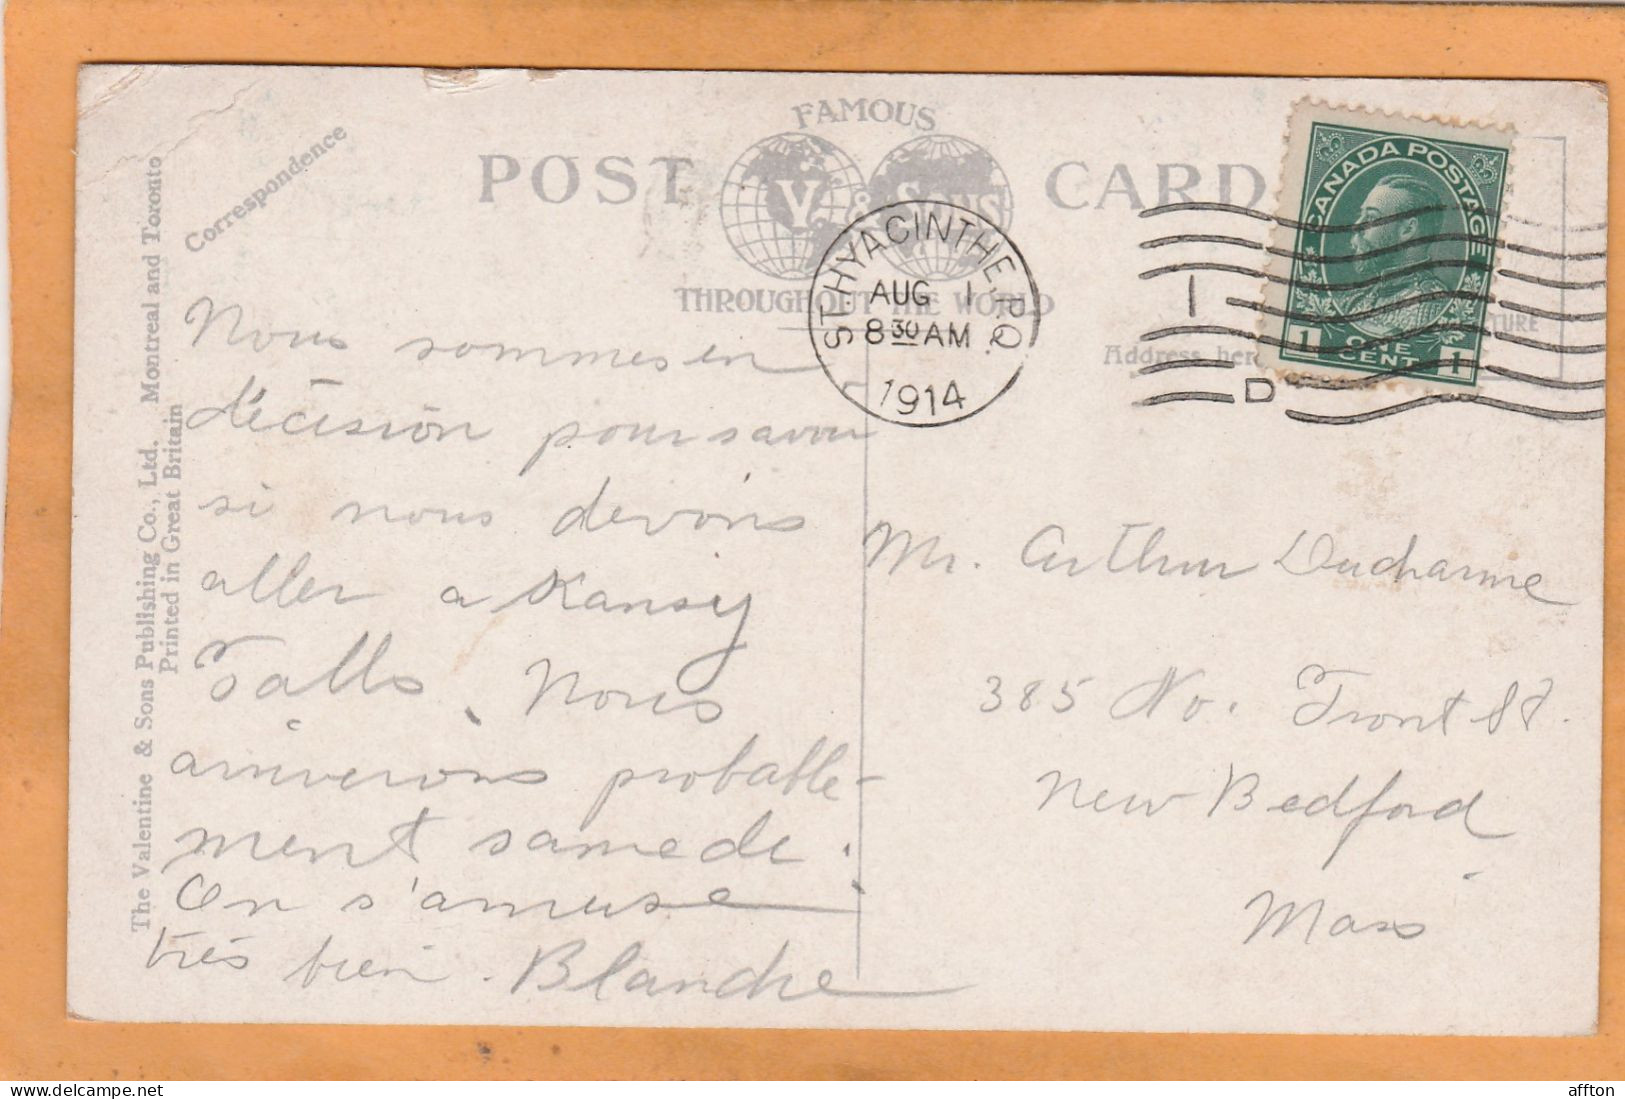 FAMOUS
POST CARD
V. & SONS
THROUGHOUT THE WORLD
Correspondence
Address here
The Valentine & Sons Publishing Co., Ltd. Montreal and Toronto
Printed in Great Britain
ST. HYACINTHE. P.Q.
AUG 1
8 30 AM
1914
1
D
CANADA POSTAGE
1 ONE CENT 1
Nous sommes en
décision pour savoir
si nous devons
aller a Kansy
Falls. Nous
arriverons probable-
ment samedi.
On s'amuse
très bien. Blanche
Mr. Arthur Ducharme
385 No. Front St.
New Bedford
Mass
affton